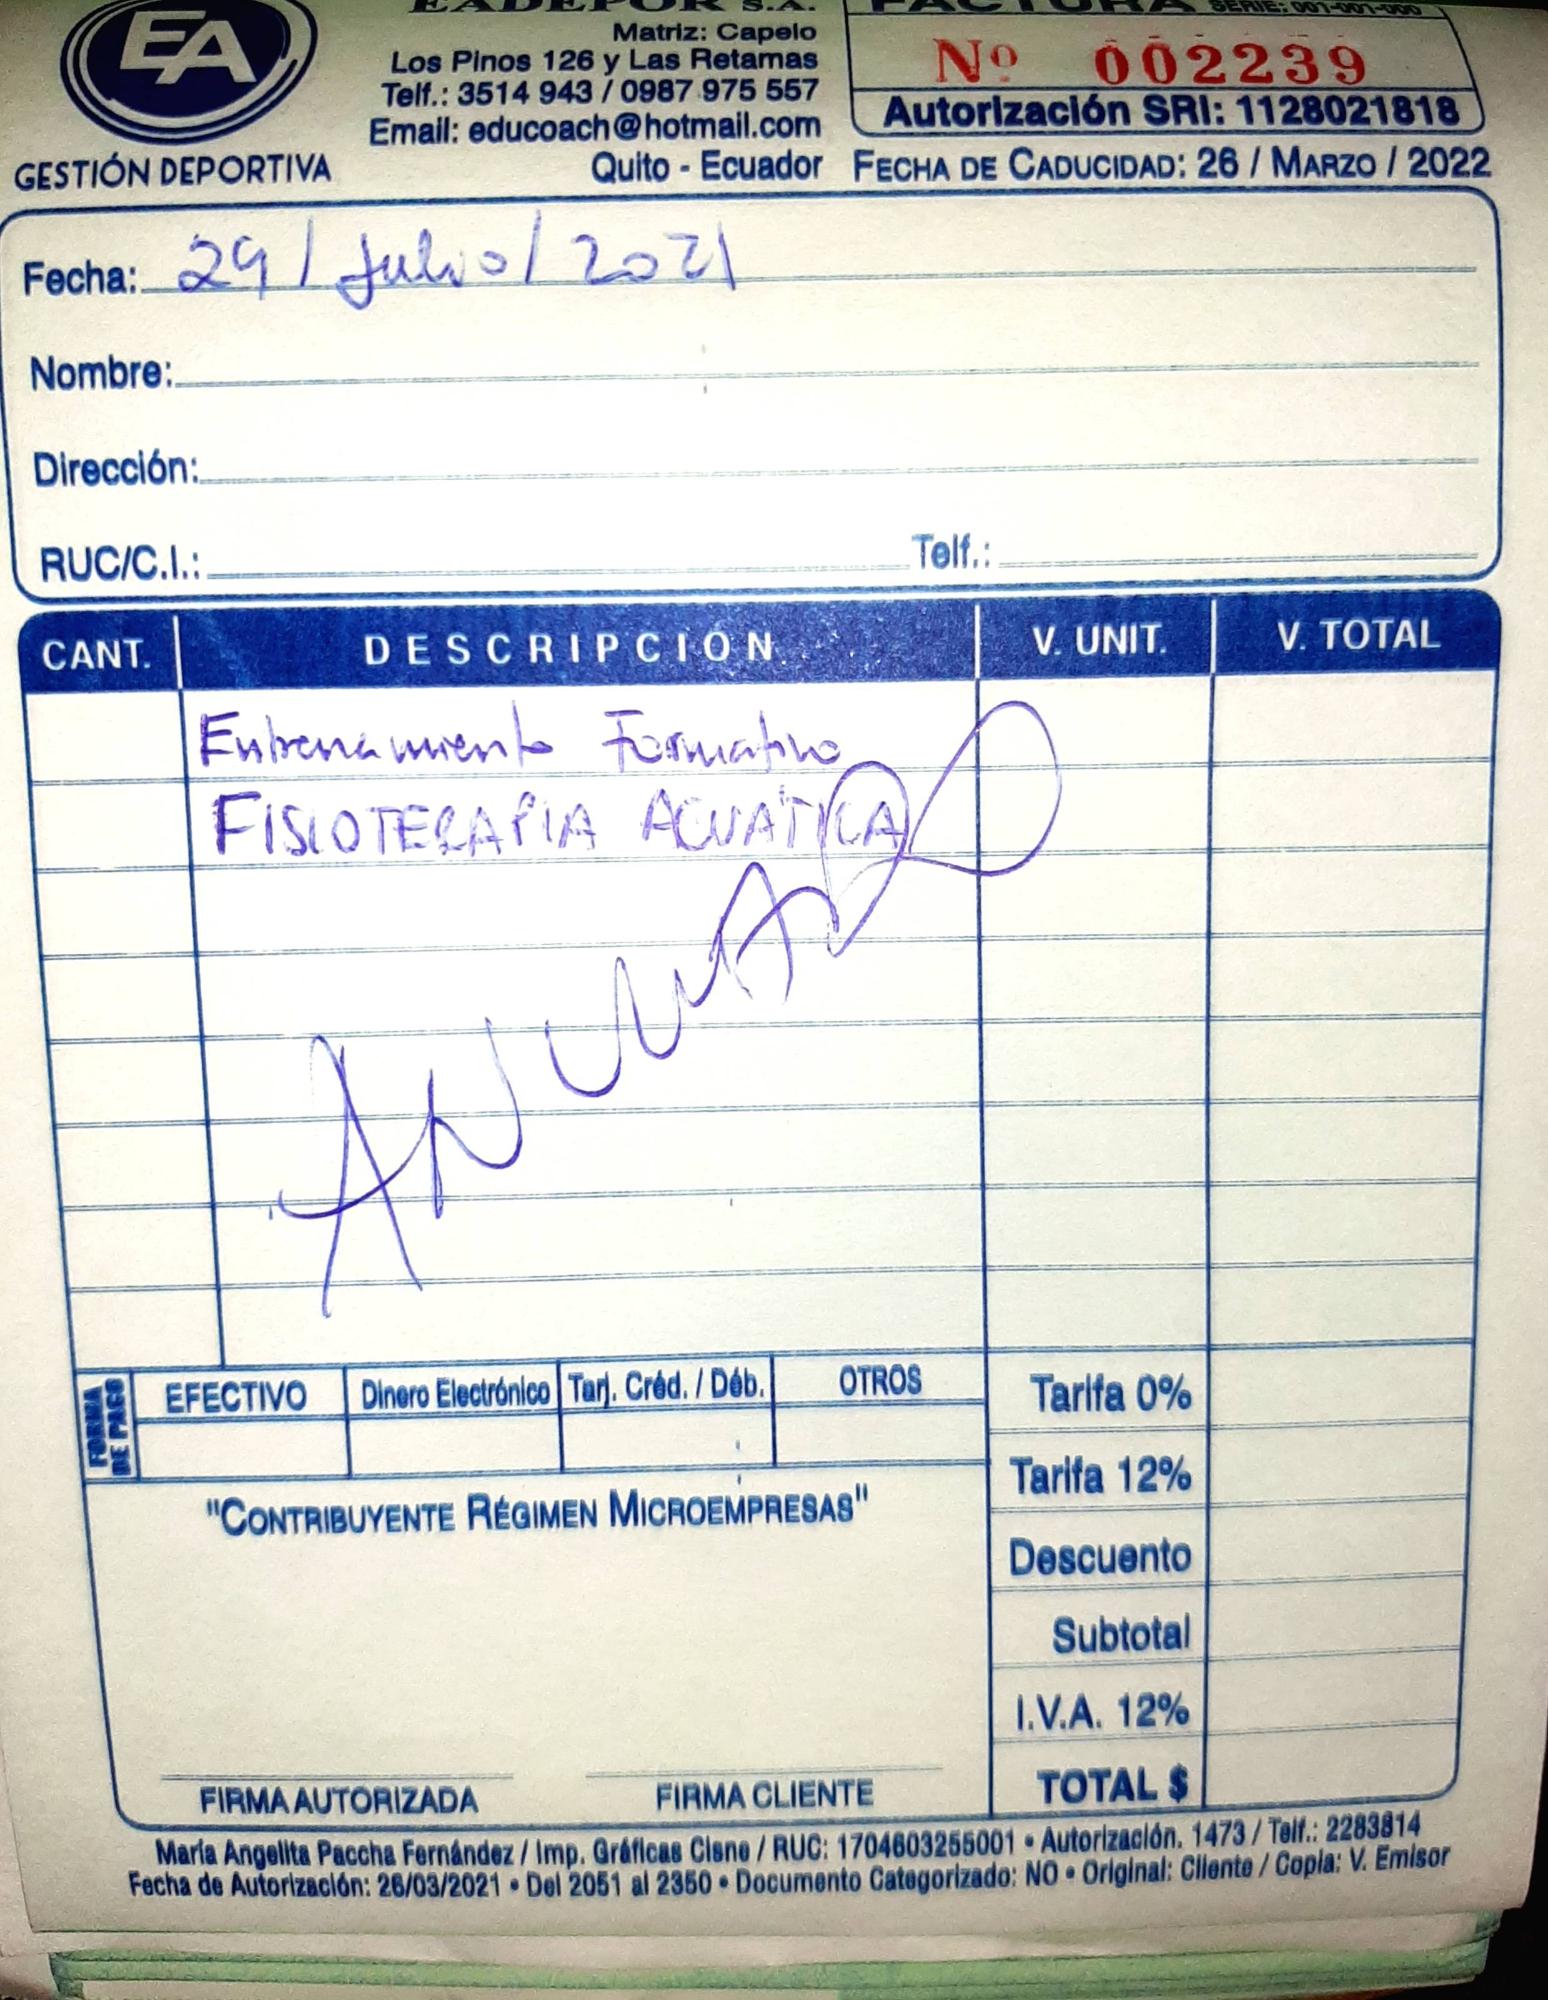 EA
GESTIÓN DEPORTIVA
EADEPOR S.A.
Matriz: Capelo
Los Pinos 126 y Las Retamas
Telf.: 3514 943 / 0987 975 557
Email: educoach@hotmail.com
Quito - Ecuador
FACTURA SERIE: 001-001-000
Nº 002239
Autorización SRI: 1128021818
FECHA DE CADUCIDAD: 26 / MARZO / 2022
Fecha: 29 / Julio / 2021
Nombre:
Dirección:
RUC/C.I.: Telf.:
CANT. DESCRIPCION V. UNIT. V. TOTAL
Entrenamiento Formativo
FISIOTERAPIA ACUATICA
ANULADO
FORMA DE PAGO
EFECTIVO Dinero Electrónico Tarj. Créd. / Déb. OTROS
Tarifa 0%
Tarifa 12%
"CONTRIBUYENTE RÉGIMEN MICROEMPRESAS"
Descuento
Subtotal
I.V.A. 12%
TOTAL $
FIRMA AUTORIZADA FIRMA CLIENTE
María Angelita Paccha Fernández / Imp. Gráficas Cisne / RUC: 1704603255001 • Autorización. 1473 / Telf.: 2283814
Fecha de Autorización: 26/03/2021 • Del 2051 al 2350 • Documento Categorizado: NO • Original: Cliente / Copia: V. Emisor